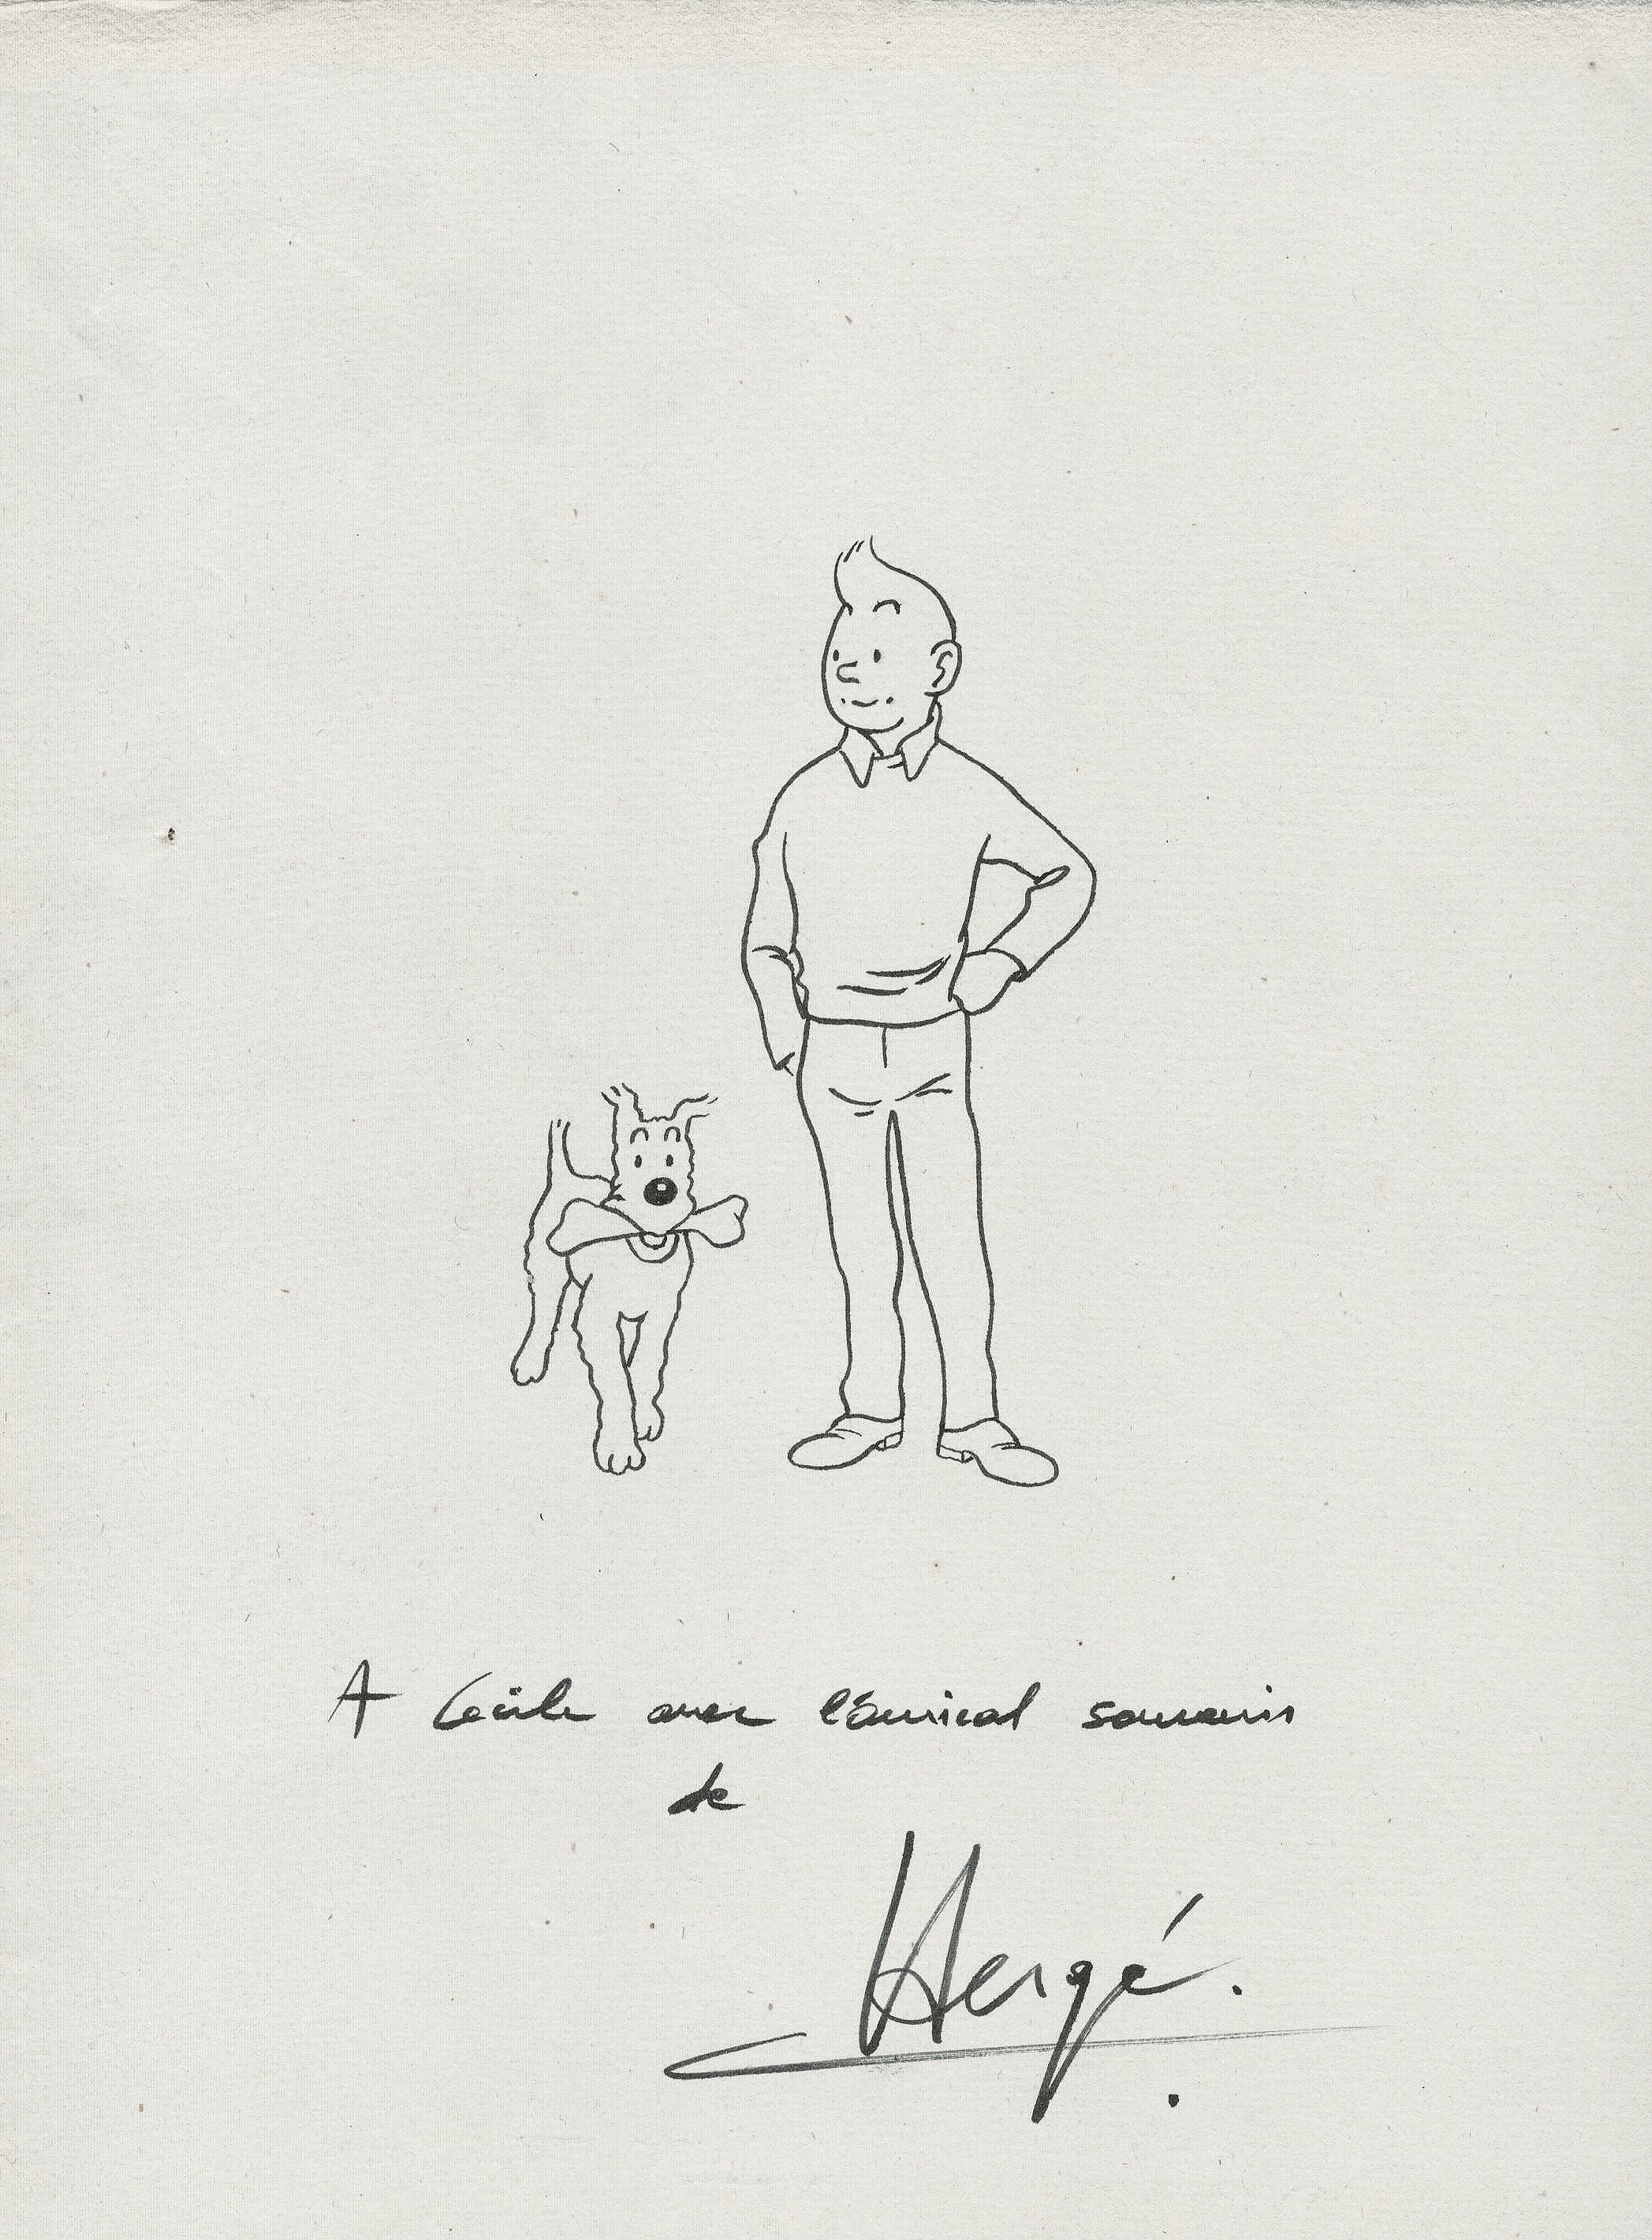 A Cécile avec l'amical souvenir
de
Hergé.